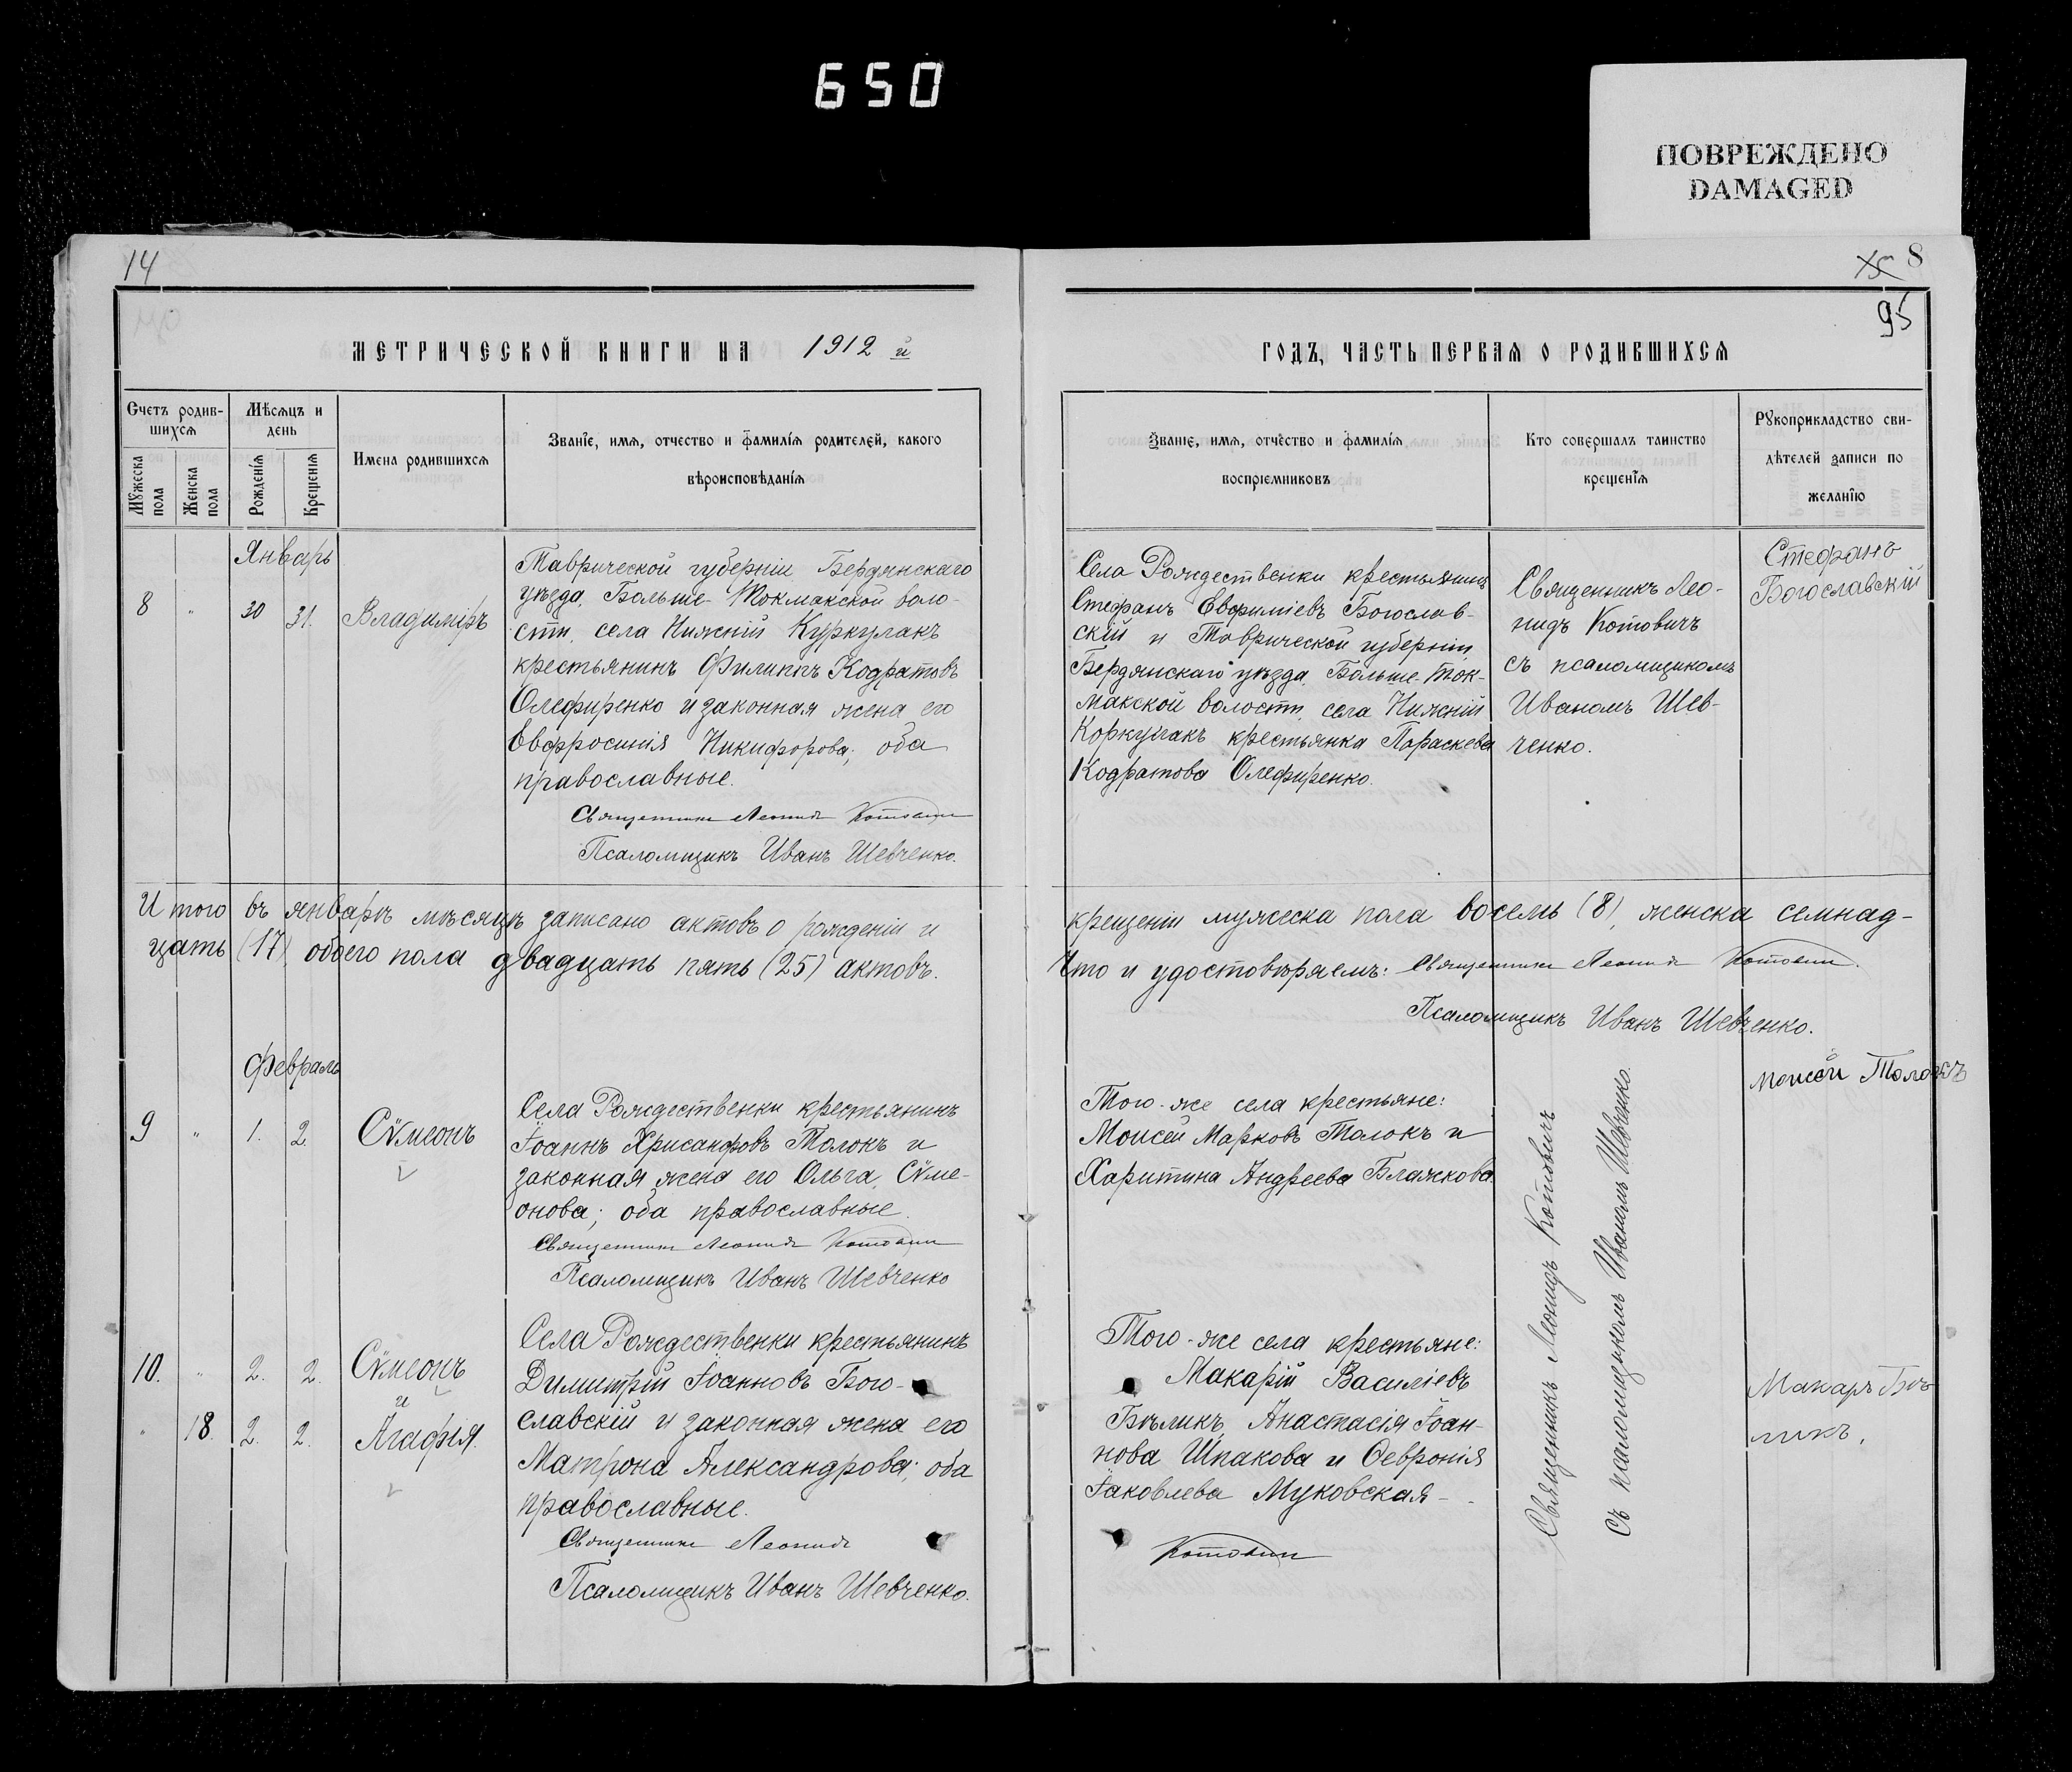 650
ПОВРЕЖДЕНО
DAMAGED
14
МЕТРИЧЕСКОЙ КНИГИ НА 1912 й
Счетъ родив-
шихся
Мѣсяцъ и
день
Имена родившихся
Званіе, имя, отчество и фамилія родителей, какого
вѣроисповѣданія
Мужеска
пола
Женска
пола
Рожденія
Крещенія
Январь
8 " 30 31. Владиміръ
Таврической губерніи Бердянскаго
уѣзда, Больше-Токмакской воло-
сти, села Нижній Куркулакъ
крестьянинъ Филиппъ Кодратовъ
Олефиренко и законная жена его
Евфросинія Никифорова; оба
православные.
Священникъ Леонидъ Котовичъ
Псаломщикъ Иванъ Шевченко.
Итого въ январѣ мѣсяцѣ записано актовъ о рожденіи и
цать (17), обоего пола двадцать пять (25) актовъ.
Февраль
9 " 1. 2. Сѵмеонъ
Села Рождественки крестьянинъ
Іоаннъ Хрисанфовъ Толокъ и
законная жена его Ольга Сѵме-
онова; оба православные.
Священникъ Леонидъ Котовичъ
Псаломщикъ Иванъ Шевченко
10. " 2. 2. Сѵмеонъ
и
" 18. 2. 2. Агафія.
Села Рождественки крестьянинъ
Димитрій Іоанновъ Бого-
славскій и законная жена его
Матрона Александрова; оба
православные.
Священникъ Леонидъ
Псаломщикъ Иванъ Шевченко.
15 8
95
ГОДЪ, ЧАСТЬ ПЕРВАЯ О РОДИВШИХСЯ
Званіе, имя, отчество и фамилія
воспріемниковъ
Кто совершалъ таинство
крещенія
Рукоприкладство сви-
дѣтелей записи по
желанію
Села Рождественки крестьянинъ
Стефанъ Евфиміевъ Богослав-
скій и Таврической губерніи,
Бердянскаго уѣзда, Больше-Ток-
макской волости, села Нижній
Коркулакъ крестьянка Параскева
Кодратова Олефиренко.
Священникъ Лео-
нидъ Котовичъ
съ псаломщикомъ
Иваномъ Шев-
ченко.
Стефанъ
Богославскій
крещеніи мужеска пола восемь (8), женска семнад-
Что и удостовѣряемъ: Священникъ Леонидъ Котовичъ.
Псаломщикъ Иванъ Шевченко.
Того-же села крестьяне:
Моисей Марковъ Толокъ и
Харитина Андреева Блажкова.
Моисей Толокъ
Того-же села крестьяне:
Макарій Василіевъ
Бѣликъ, Анастасія Іоан-
нова Шпакова и Февронія
Іаковлева Муковская-
Котовичъ
Священникъ Леонидъ Котовичъ
Съ псаломщикомъ Иваномъ Шевченко.
Макаръ Бѣ
ликъ,